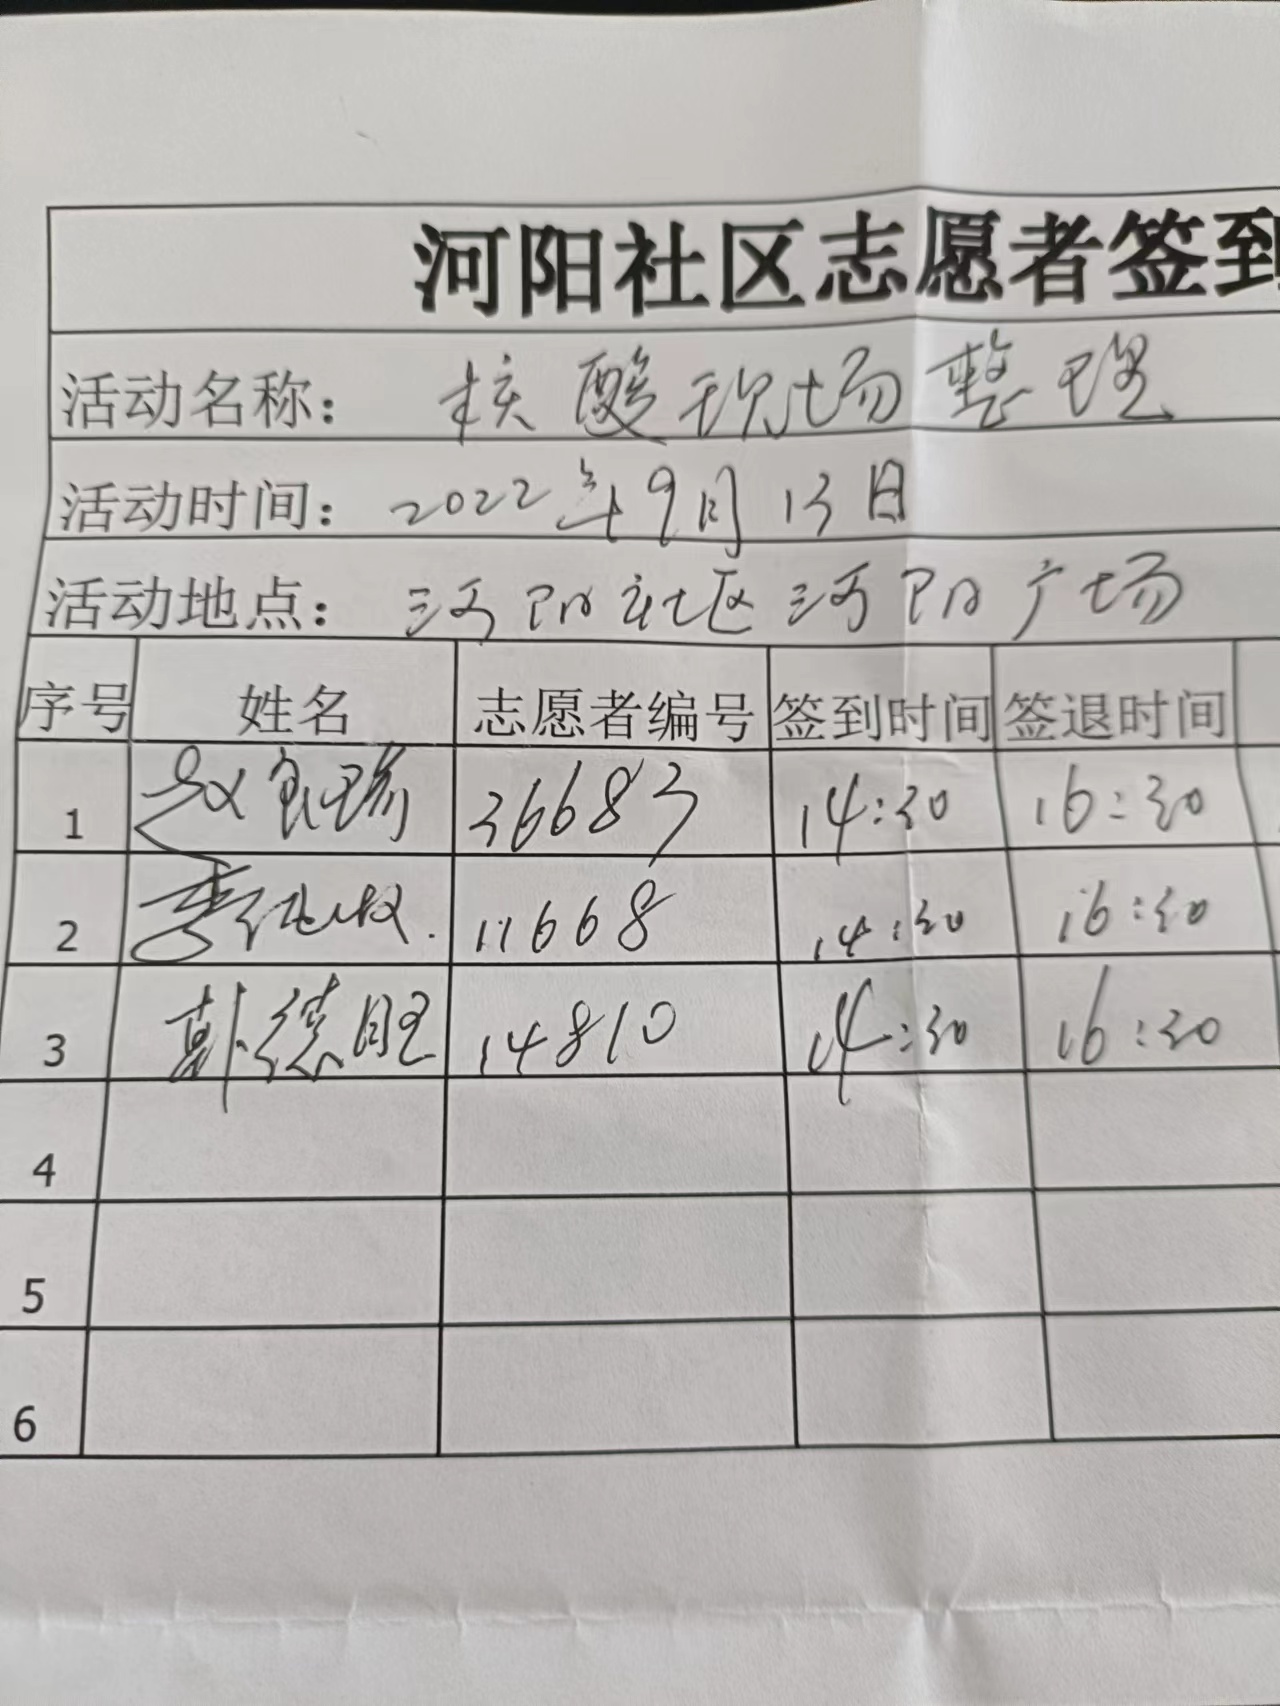 河阳社区志愿者签到
活动名称： 核酸现场整理
活动时间： 2022年9月13日
活动地点： 河阳社区河阳广场
序号 姓名 志愿者编号 签到时间 签退时间
1 赵银瑞 36683 14:30 16:30
2 李 11668 14:30 16:30
3 戴德旺 14810 14:30 16:30
4
5
6